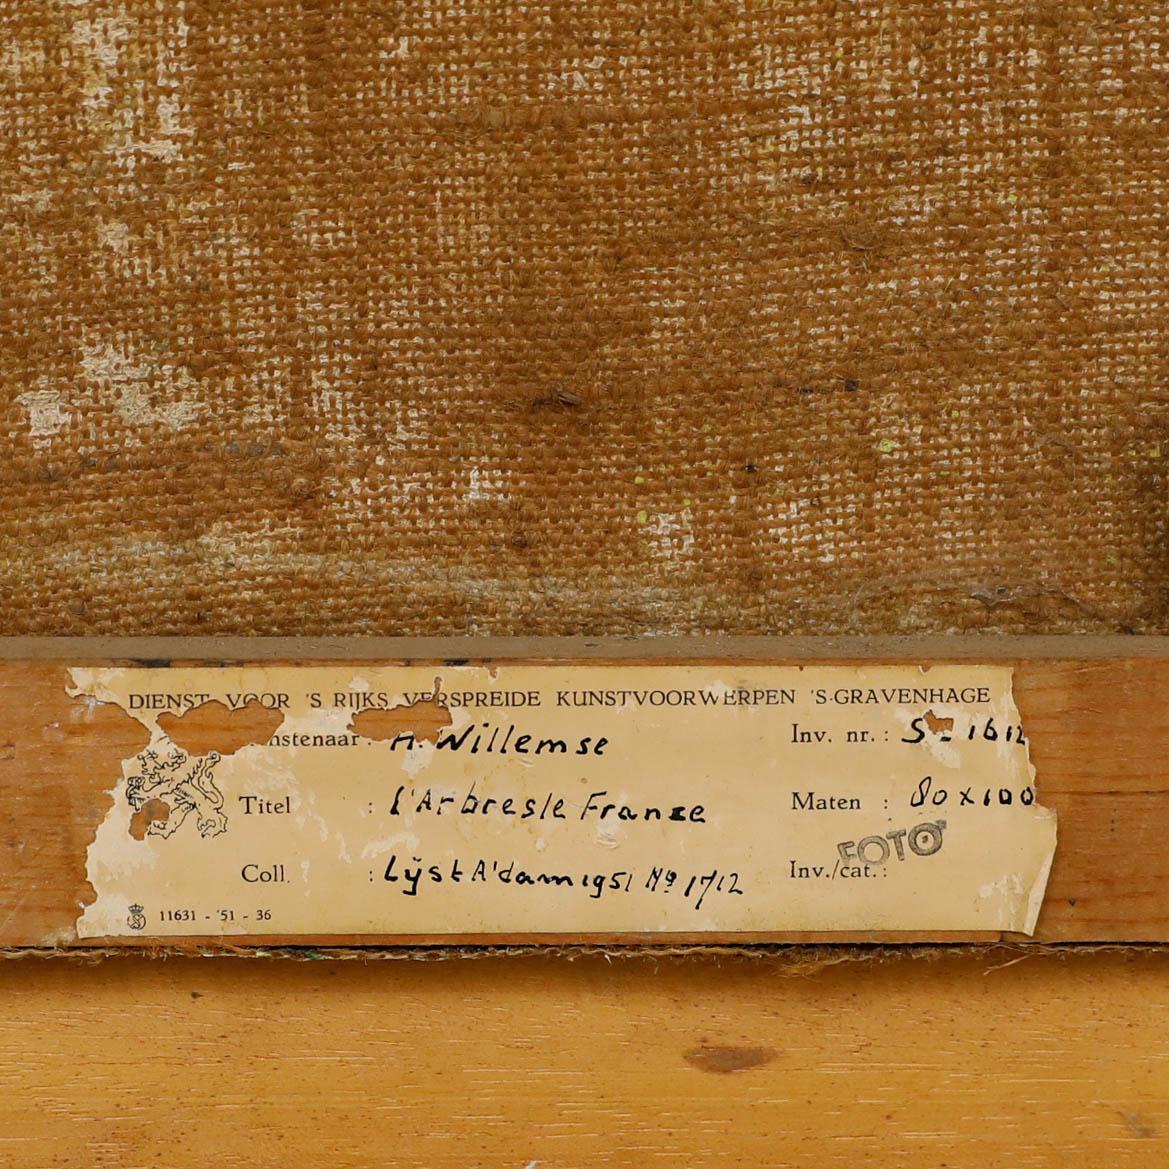 DIENST VOOR 'S RIJKS VERSPREIDE KUNSTVOORWERPEN 'S-GRAVENHAGE
nstenaar : H. Willemse Inv. nr. : 1612
Titel : l'Arbresle France Maten : 80 x 100
FOTO
Coll. : Lÿst A'dam 1951 No 1712 Inv./cat. :
11631 - '51 - 36